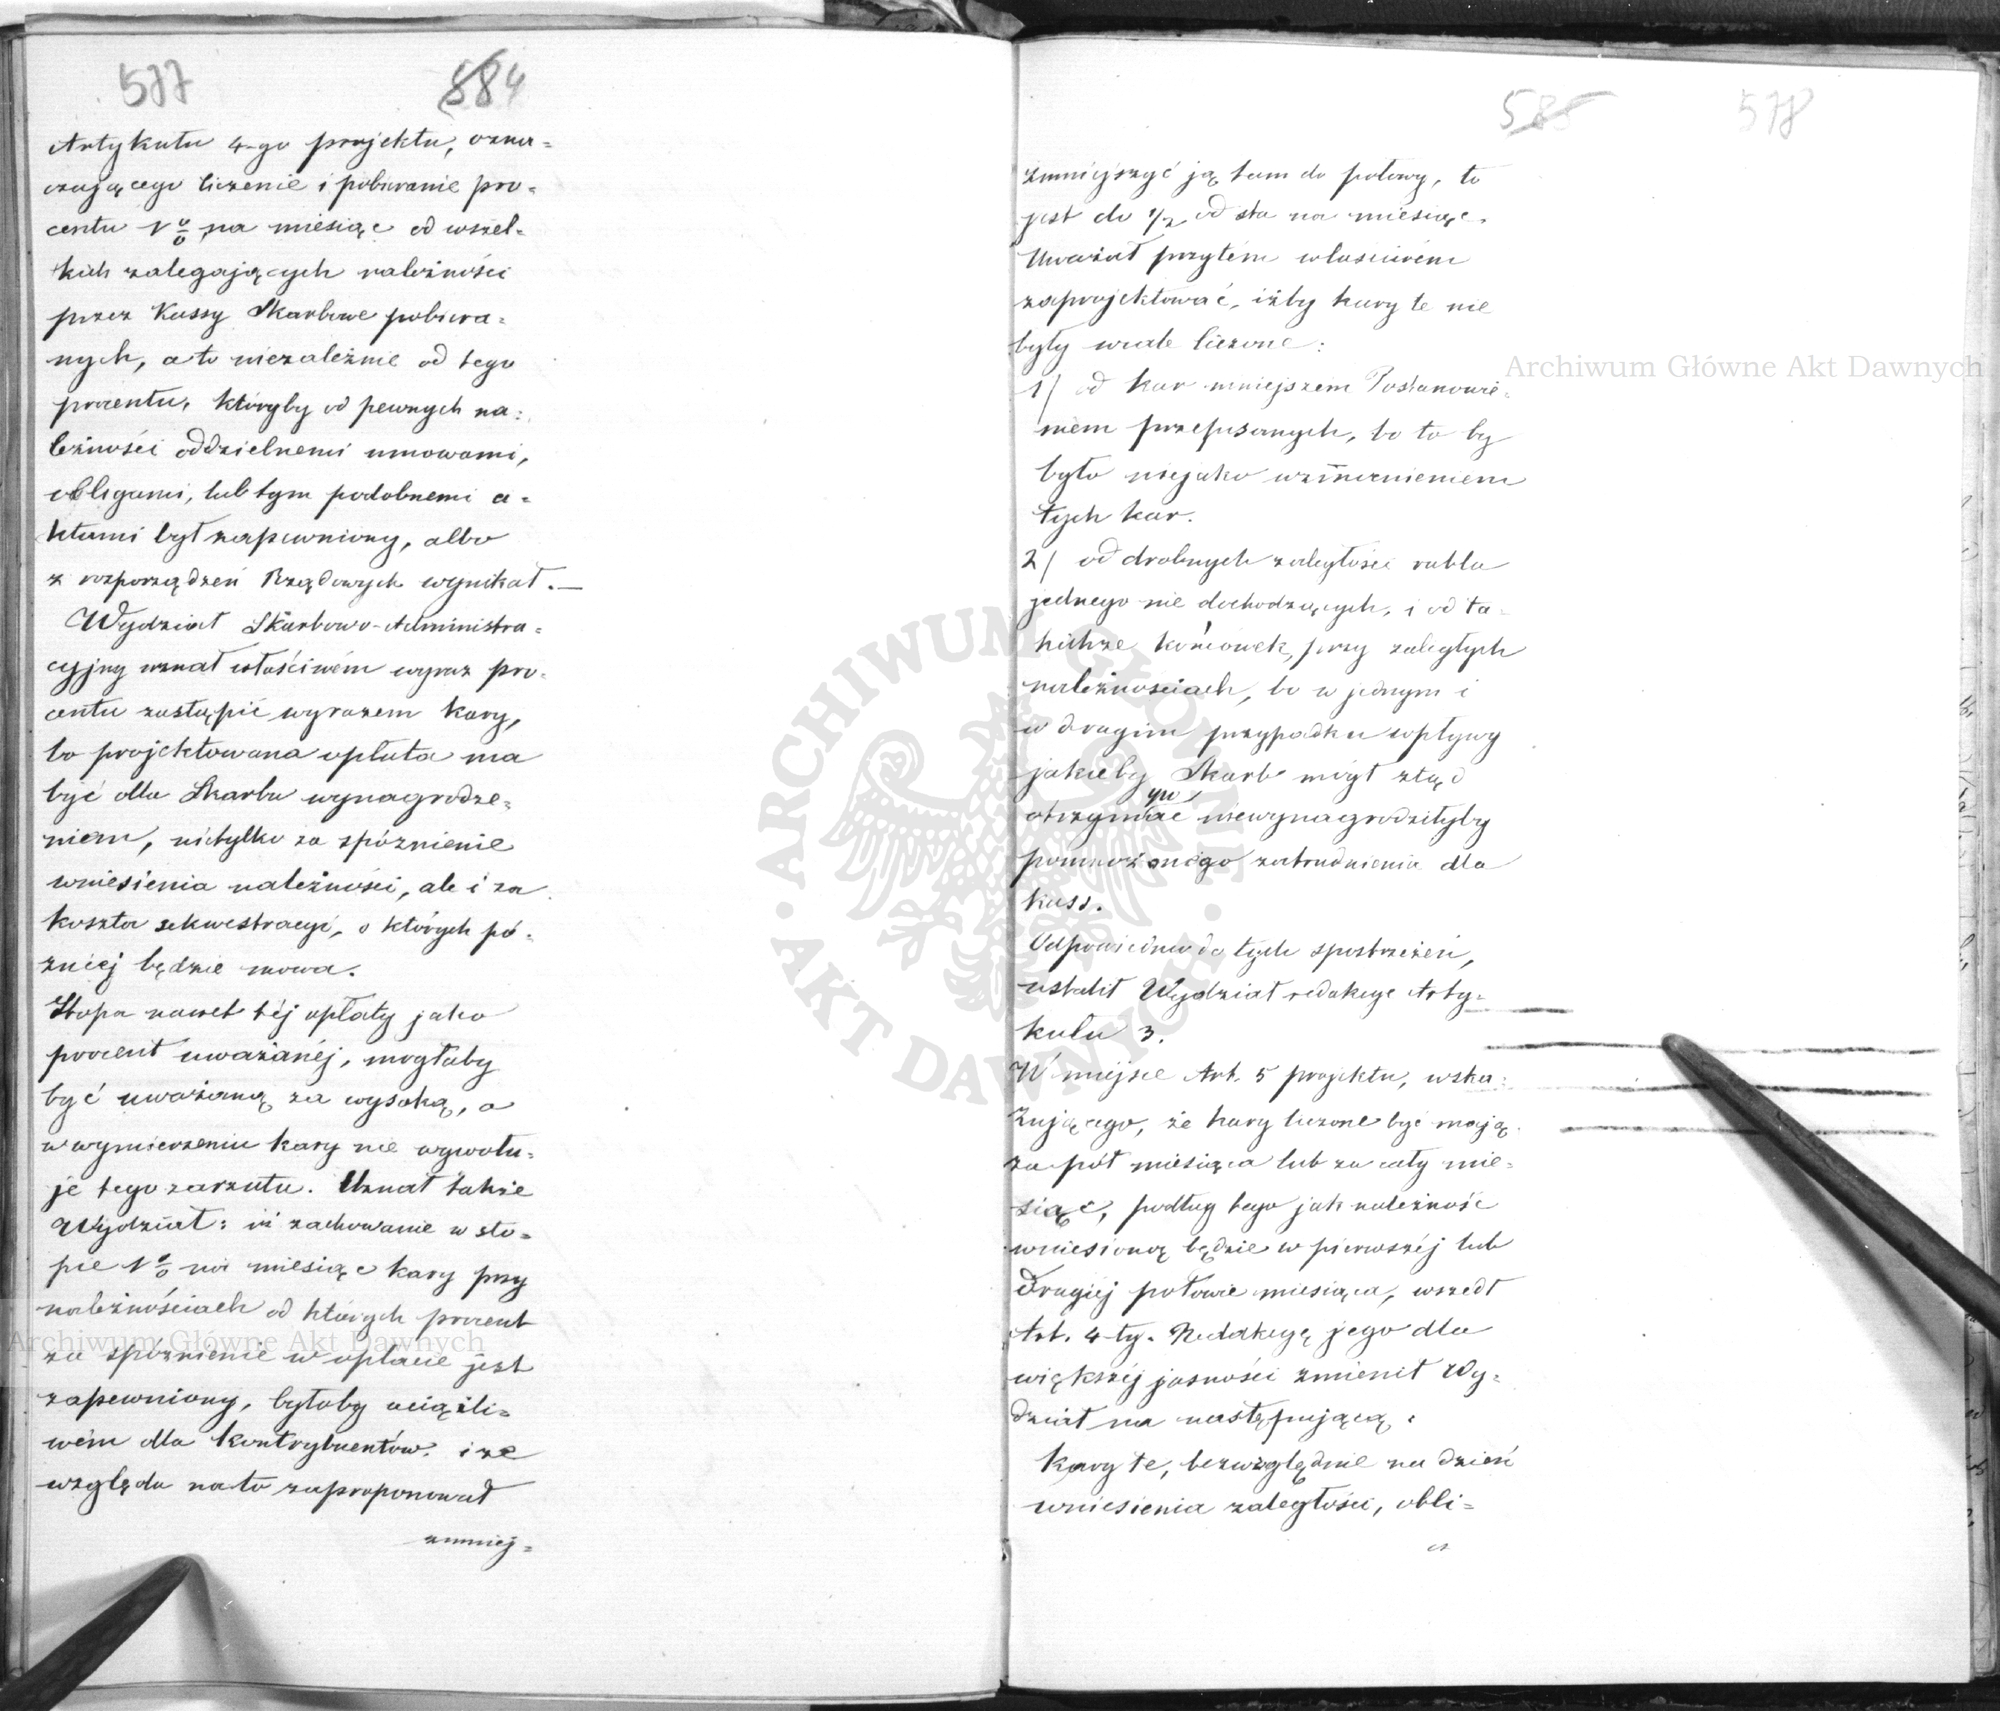 577 884
Artykułu 4-go projektu, ozna=
czającego liczenie i pobieranie pro=
centu 1% na miesiąc od wszel=
kich zalegających należności
przez Kassy Skarbowe pobiera=
nych, a to niezależnie od tego
procentu, któryby od pewnych na=
leżności oddzielnemi umowami,
obligami, lub tym podobnemi a=
ktami był zapewniony, albo
z rozporządzeń Rządowych wynikał.—
Wydział Skarbowo-Administra=
cyjny uznał właściwém wyraz pro=
centu zastąpić wyrazem kary,
bo projektowana opłata ma
być dla Skarbu wynagrodze=
niem, nietylko za spóznienie
wniesienia należności, ale i za
koszta sekwestracyi, o których pó=
zniej będzie mowa.
Stopa nawet téj opłaty jako
procent uważanéj, mogłaby
być uważaną za wysoką, a
w wymierzeniu kary nie wywołu=
je tego zarzutu. Uznał także
Wydział: iż zachowanie w sto=
pie 1% na miesiąc kary przy
należnościach od których procent
za spóznienie w opłacie jest
zapewniony, byłoby uciążli=
wém dla kontrybuentów. i ze
względu na to zaproponował
zmniej=
585 578
zmniejszyć ją tam do połowy, to
jest do 1/2 od sta na miesiąc.
Uważał przytém właściwém
zaprojektować, iżby kary te nie
były wcale liczone:
1/ od kar niniejszem Postanowie=
niem przepisanych, bo to by
było niejako wzmocnieniem
tych kar.
2/ od drobnych zaległości rubla
jednego nie dochodzących, i od ta=
kichże końcówek, przy zaległych
należnościach, bo w jednym i
w drugim przypadku wpływy
jakieby Skarb mógł ztąd
otrzymać niewynagrodziłyby
pomnożonego zatrudnienia dla
kass.
Odpowiednio do tych spostrzeżeń,
ustalił Wydział redakcye Arty=
kułu 3.
W miejsce Art. 5 projektu, wska=
zującego, że kary liczone być mają
za pół miesiąca lub za cały mie=
siąc, podług tego jak należność
wniesioną będzie w pierwszéj lub
drugiéj połowie miesiąca, wszedł
Art. 4-ty. Redakcyę jego dla
większéj jasności zmienił Wy=
dział na następującą:
Kary te, bezwzględnie na dzień
wniesienia zaległości, obli=
cz
Archiwum Główne Akt Dawnych
ARCHIWUM GŁÓWNE · AKT DAWNYCH ·
Archiwum Główne Akt Dawnych